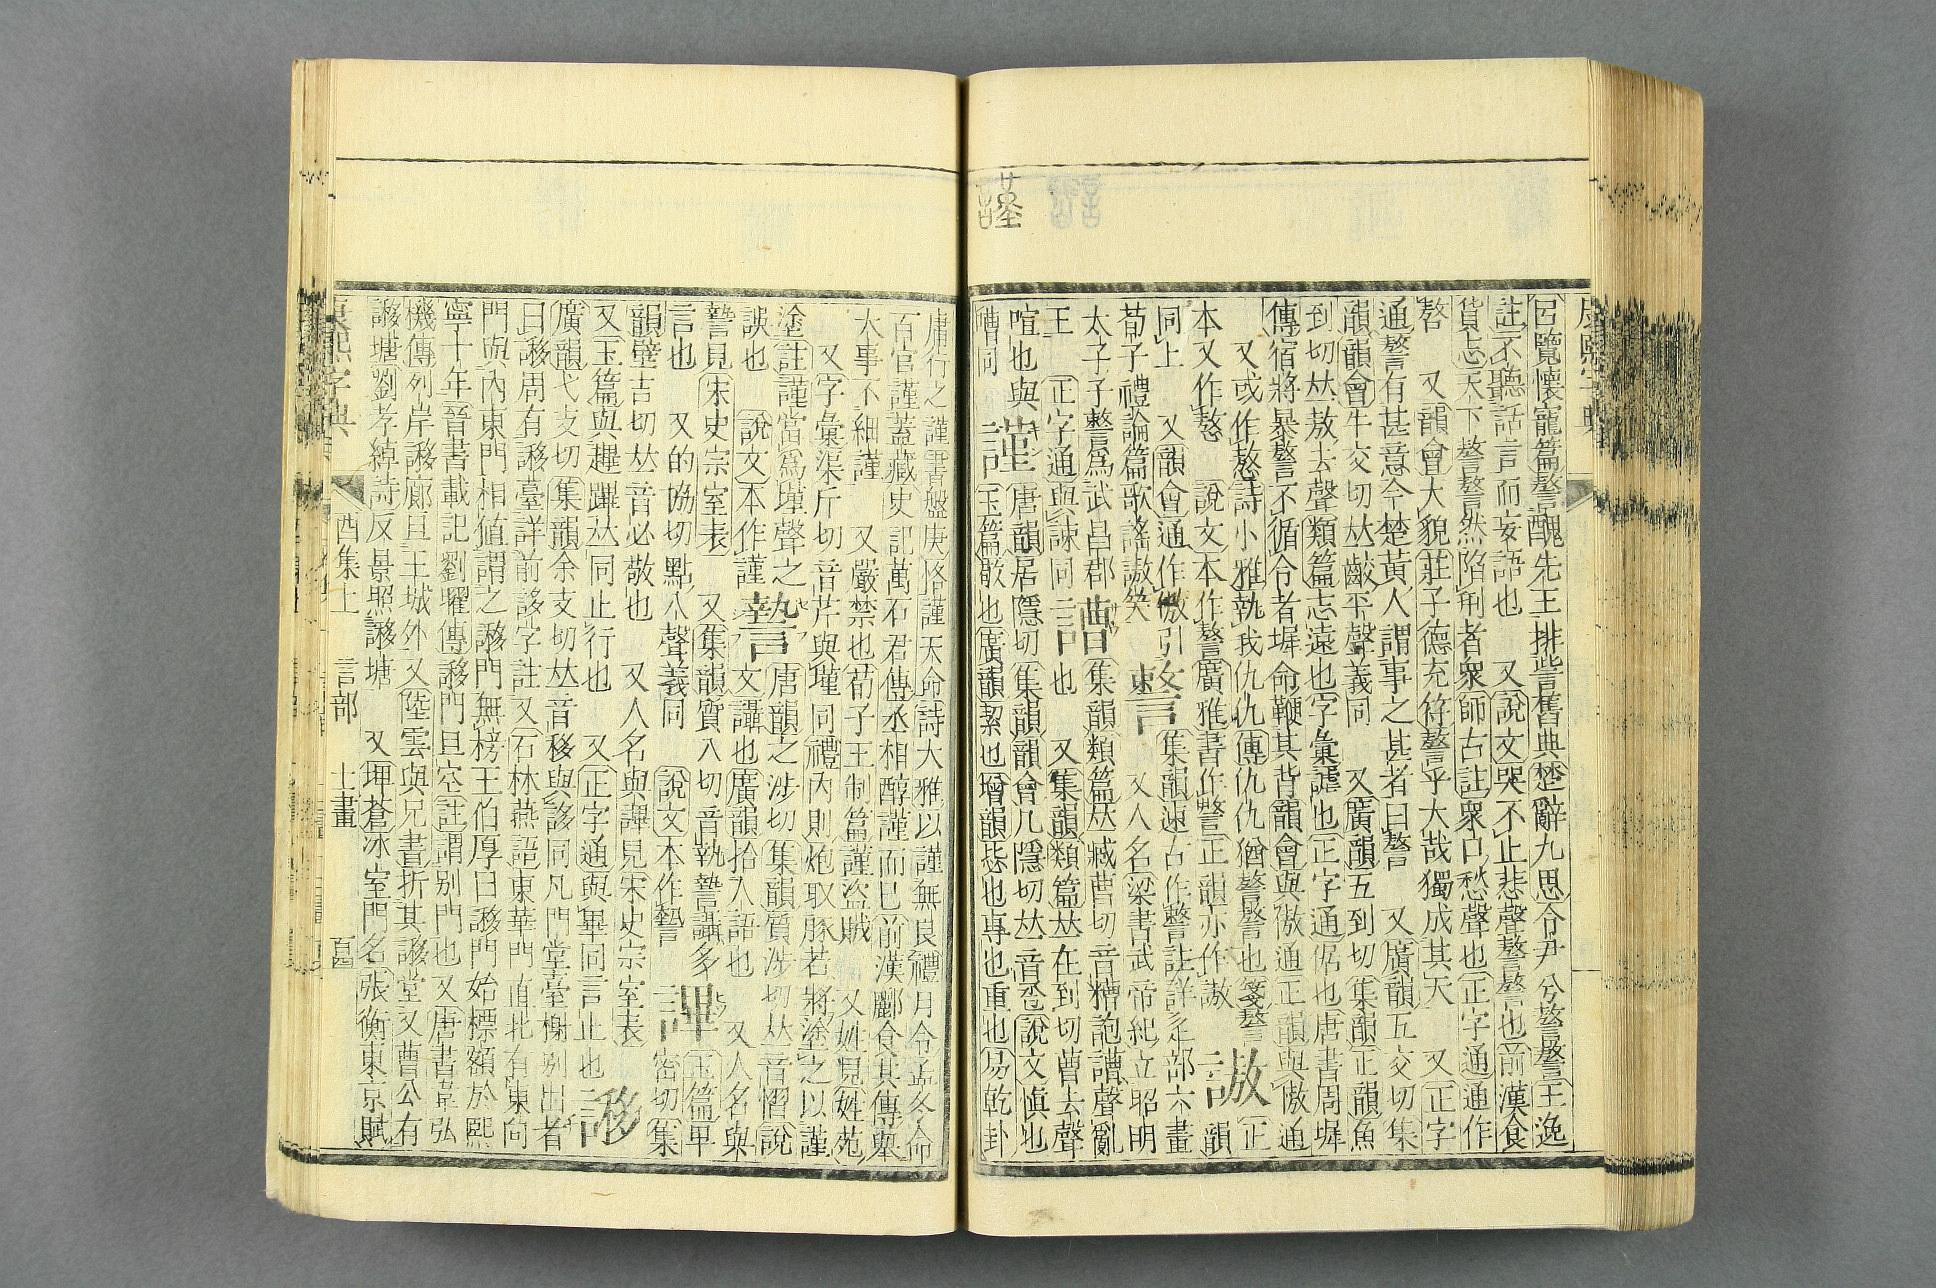 康熙字典
呂覽懷寵篇謷醜先王排訾舊典楚辭九思令尹兮謷謷王逸
註不聽話言而妄語也 又說文哭不止悲聲謷謷也前漢食
貨志天下謷謷然陷刑者衆師古註衆口愁聲也正字通通作
嗸 又韻會大貌莊子德充符謷乎大哉獨成其天 又正字
通謷有甚意今楚黃人謂事之甚者曰謷 又廣韻五交切集
韻韻會牛交切𠀤齩平聲義同 又廣韻五到切集韻正韻魚
到切𠀤敖去聲類篇志遠也字彙謔也正字通倨也唐書周墀
傳宿將暴謷不循令者墀命鞭其背韻會與傲通正韻與慠通
又或作嗸詩小雅執我仇仇傳仇仇猶謷謷也箋謷 謸 正
本又作嗸 說文本作謷廣雅書作謷正韻亦作謸 韻
同上 又韻會通作傲引 集韻速古作註詳辵部六畫
荀子禮論篇歌謠謸笑 又人名梁書武帝紀立昭明
太子子爲武昌郡 集韻類篇𠀤臧曹切音糟聲亂
王 正字通與諫同 言也 又集韻類篇𠀤在到切曹去聲
喧也與 謹 唐韻居隱切集韻韻會几隱切𠀤音卺說文愼也
嘈同 玉篇敬也廣韻絜也增韻毖也專也重也易乾卦
謹
庸行之謹書盤庚恪謹天命詩大雅以謹無良禮月令孟冬命
百官謹蓋藏史記萬石君傳丞相醇謹而已前漢酈食其傳舉
大事不細謹 又嚴禁也荀子王制篇謹盜賊 又姓見姓苑
又字彙渠斤切音芹與墐同禮內則炮取豚若將塗之以謹
塗註謹當爲墐聲之 謺 唐韻之涉切集韻質涉切𠀤音慴說
誤也 說文本作謹 文讘也廣韻拾人語也 又人名與
謺見宋史宗室表 又集韻質入切音執謺讘多 㻫 玉篇甲
言也 又的協切點入聲義同 說文本作謺 密切集
韻壁吉切𠀤音必敬也 又人名與㻫見宋史宗室表
又玉篇與趩蹕𠀤同止行也 又正字通與畢同言止也 謻
廣韻弋支切集韻余支切𠀤音移與誃同凡門堂臺榭別出者
曰謻周有謻臺詳前誃字註 又石林燕語東華門直北有東向
門與內東門相値謂之謻門無榜王伯厚曰謻門始標額於熙
寧十年晉書載記劉曜傳謻門旦空註謂別門也 又唐書韋弘
機傳列岸謻廊亘王城外 又陸雲與兄書折其謻堂 又曹公有
謻塘劉孝綽詩反景照謻塘 又埤蒼冰室門名張衡東京賦
康熙字典 酉集上 言部 十一畫